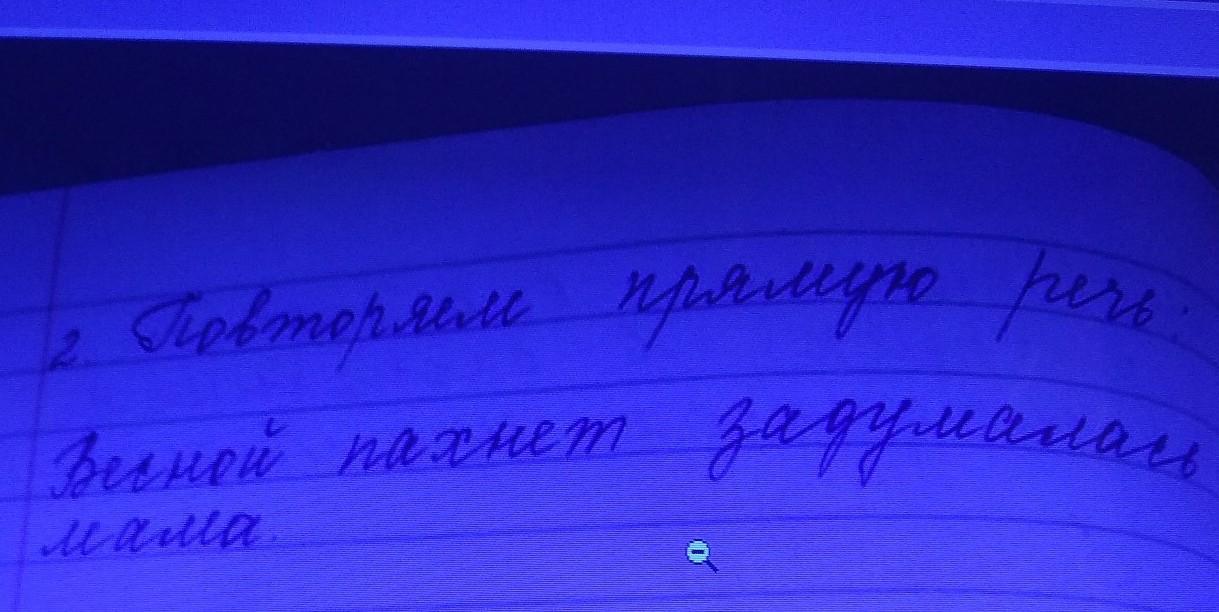 2. Повторяем прямую речь.
Весной пахнет задумалась
мама.